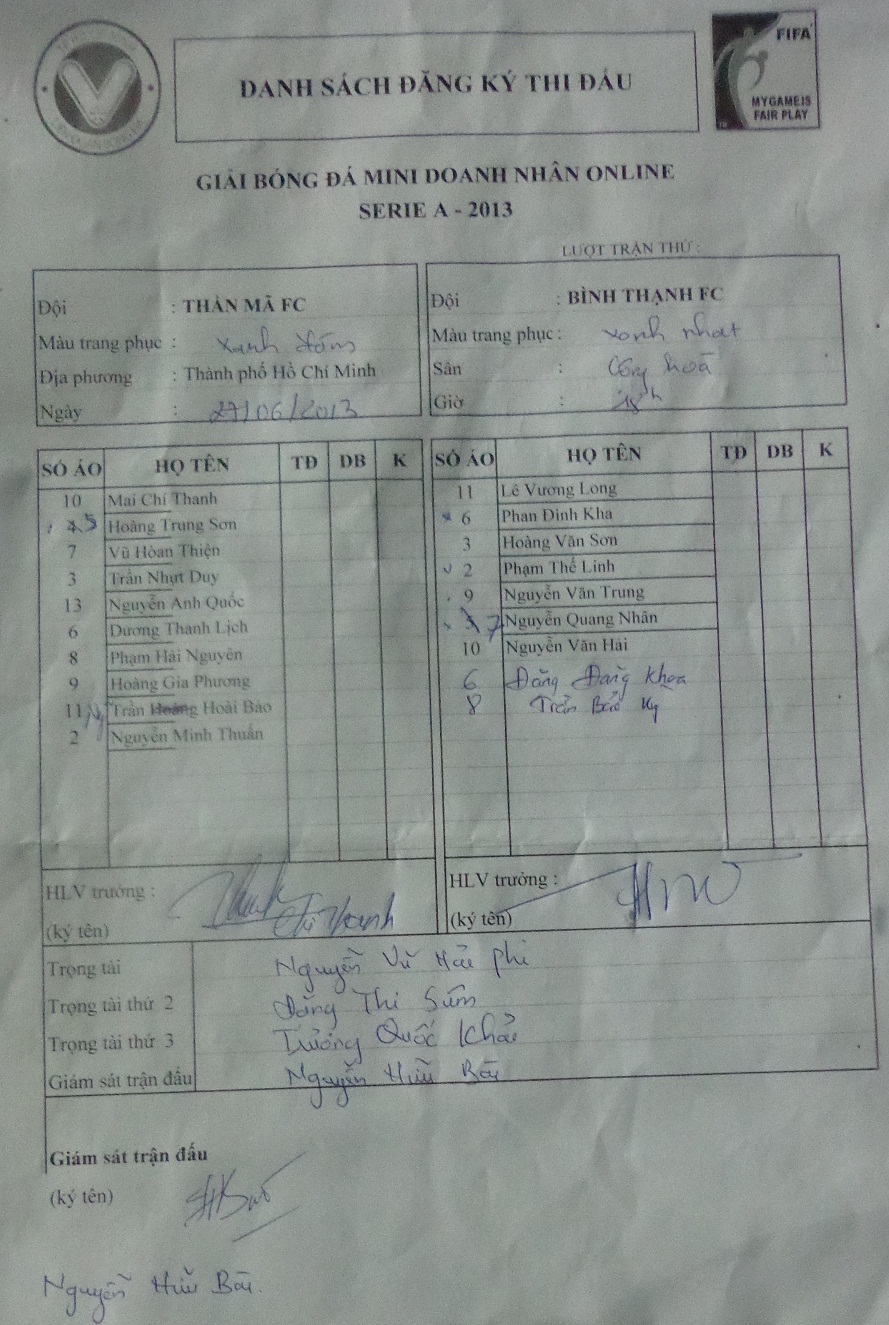 FIFA
MY GAME IS
FAIR PLAY
DANH SÁCH ĐĂNG KÝ THI ĐẤU
GIẢI BÓNG ĐÁ MINI DOANH NHÂN ONLINE
SERIE A - 2013
LƯỢT TRẬN THỨ :
Đội : THẦN MÃ FC
Màu trang phục : xanh đậm
Địa phương : Thành phố Hồ Chí Minh
Ngày : 27/06/2013
Đội : BÌNH THẠNH FC
Màu trang phục : xanh nhạt
Sân : Cộng hoà
Giờ :
SỐ ÁO HỌ TÊN TĐ DB K
10 Mai Chí Thanh
5 Hoàng Trung Sơn
7 Vũ Hòan Thiện
3 Trần Nhựt Duy
13 Nguyễn Anh Quốc
6 Dương Thanh Lịch
8 Phạm Hải Nguyên
9 Hoàng Gia Phương
11 Trần Hoàng Hoài Bảo
2 Nguyễn Minh Thuấn
SỐ ÁO HỌ TÊN TĐ DB K
11 Lê Vương Long
6 Phan Đình Kha
3 Hoàng Văn Sơn
2 Phạm Thế Linh
9 Nguyễn Văn Trung
7 Nguyễn Quang Nhân
10 Nguyễn Văn Hải
6 Đặng Đăng Khoa
8 Trần Bảo Kỳ
HLV trưởng :
(ký tên) Chí Thanh
HLV trưởng :
(ký tên)
Trọng tài Nguyễn Vũ Hải Phi
Trọng tài thứ 2 Đặng Thi
Trọng tài thứ 3 Trương Quốc Khải
Giám sát trận đấu Nguyễn Hữu Bái
Giám sát trận đấu
(ký tên)
Nguyễn Hữu Bái.